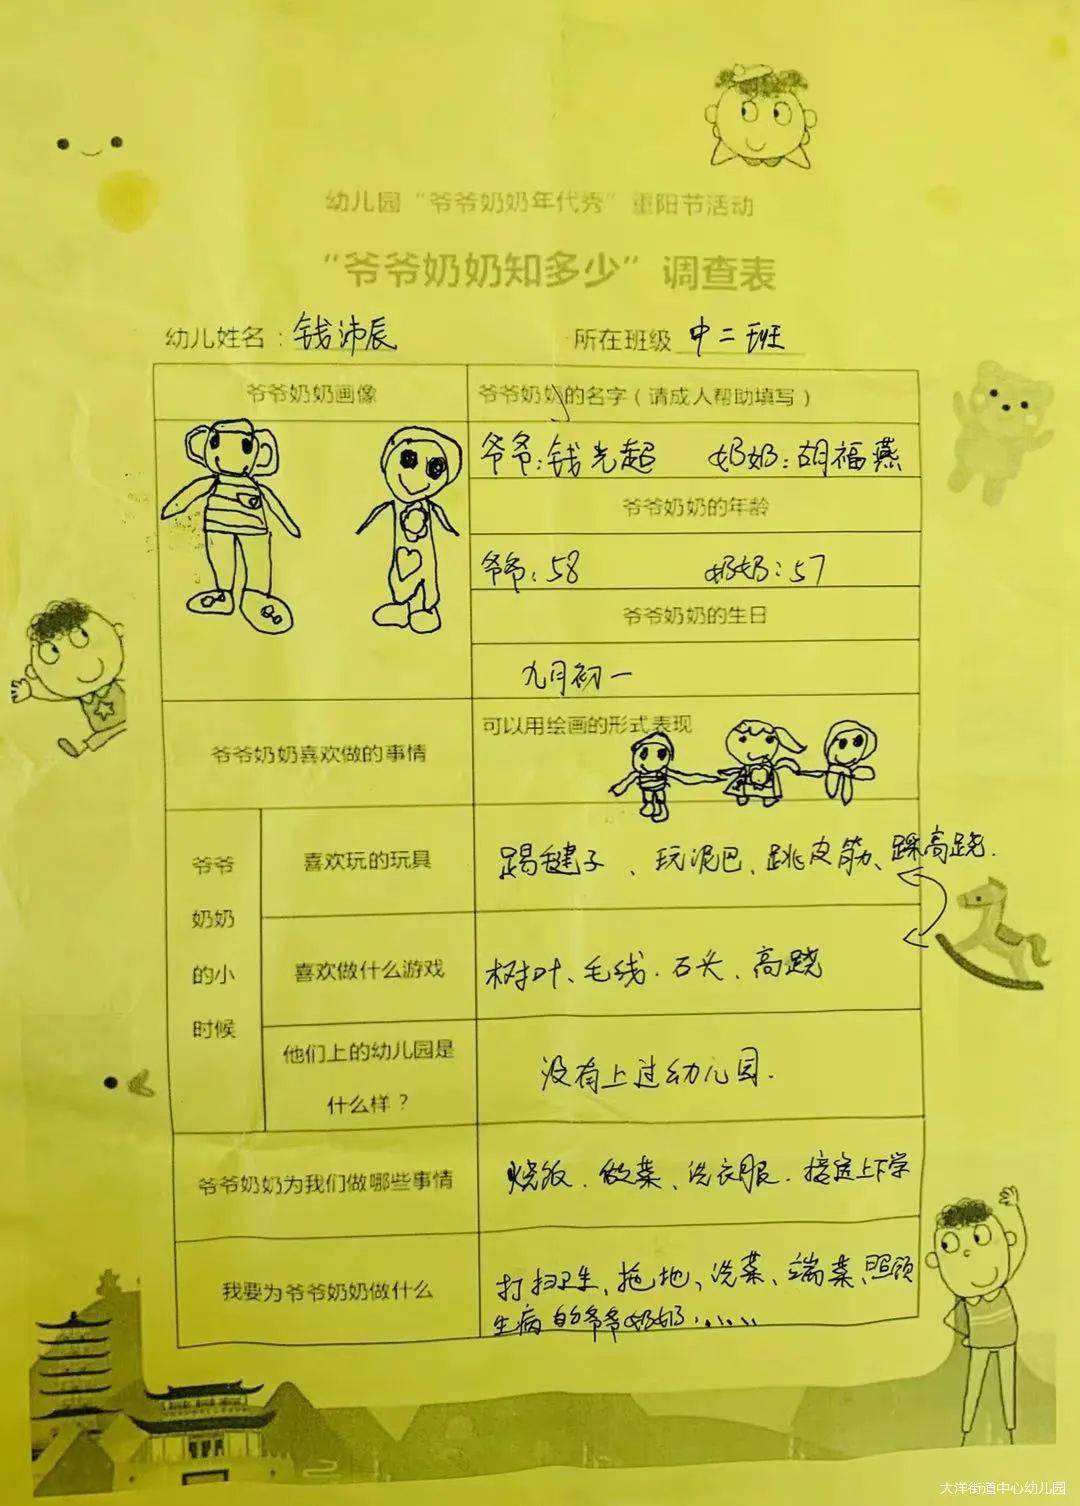 幼儿园“爷爷奶奶年代秀”重阳节活动
“爷爷奶奶知多少”调查表
幼儿姓名：钱沛辰 所在班级 中二班
爷爷奶奶画像
爷爷奶奶的名字（请成人帮助填写）
爷爷：钱光起 奶奶：胡福燕
爷爷奶奶的年龄
爷爷：58 奶奶：57
爷爷奶奶的生日
九月初一
爷爷奶奶喜欢做的事情
可以用绘画的形式表现
爷爷
奶奶
的小
时候
喜欢玩的玩具
踢毽子、玩泥巴、跳皮筋、踩高跷.
喜欢做什么游戏
树叶、毛线.石头、高跷
他们上的幼儿园是
什么样？
没有上过幼儿园.
爷爷奶奶为我们做哪些事情
烧饭.做菜、洗衣服.接送上下学
我要为爷爷奶奶做什么
打扫卫生、拖地、洗菜、端菜、照顾
生病的爷爷奶奶......
大洋街道中心幼儿园